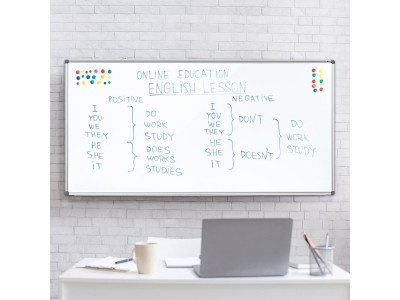 ONLINE EDUCATION
ENGLISH LESSON
POSITIVE
I
YOU
WE
THEY
DO
WORK
STUDY
HE
SHE
IT
DOES
WORKS
STUDIES
NEGATIVE
I
YOU
WE
THEY
DON'T
HE
SHE
IT
DOESN'T
DO
WORK
STUDY